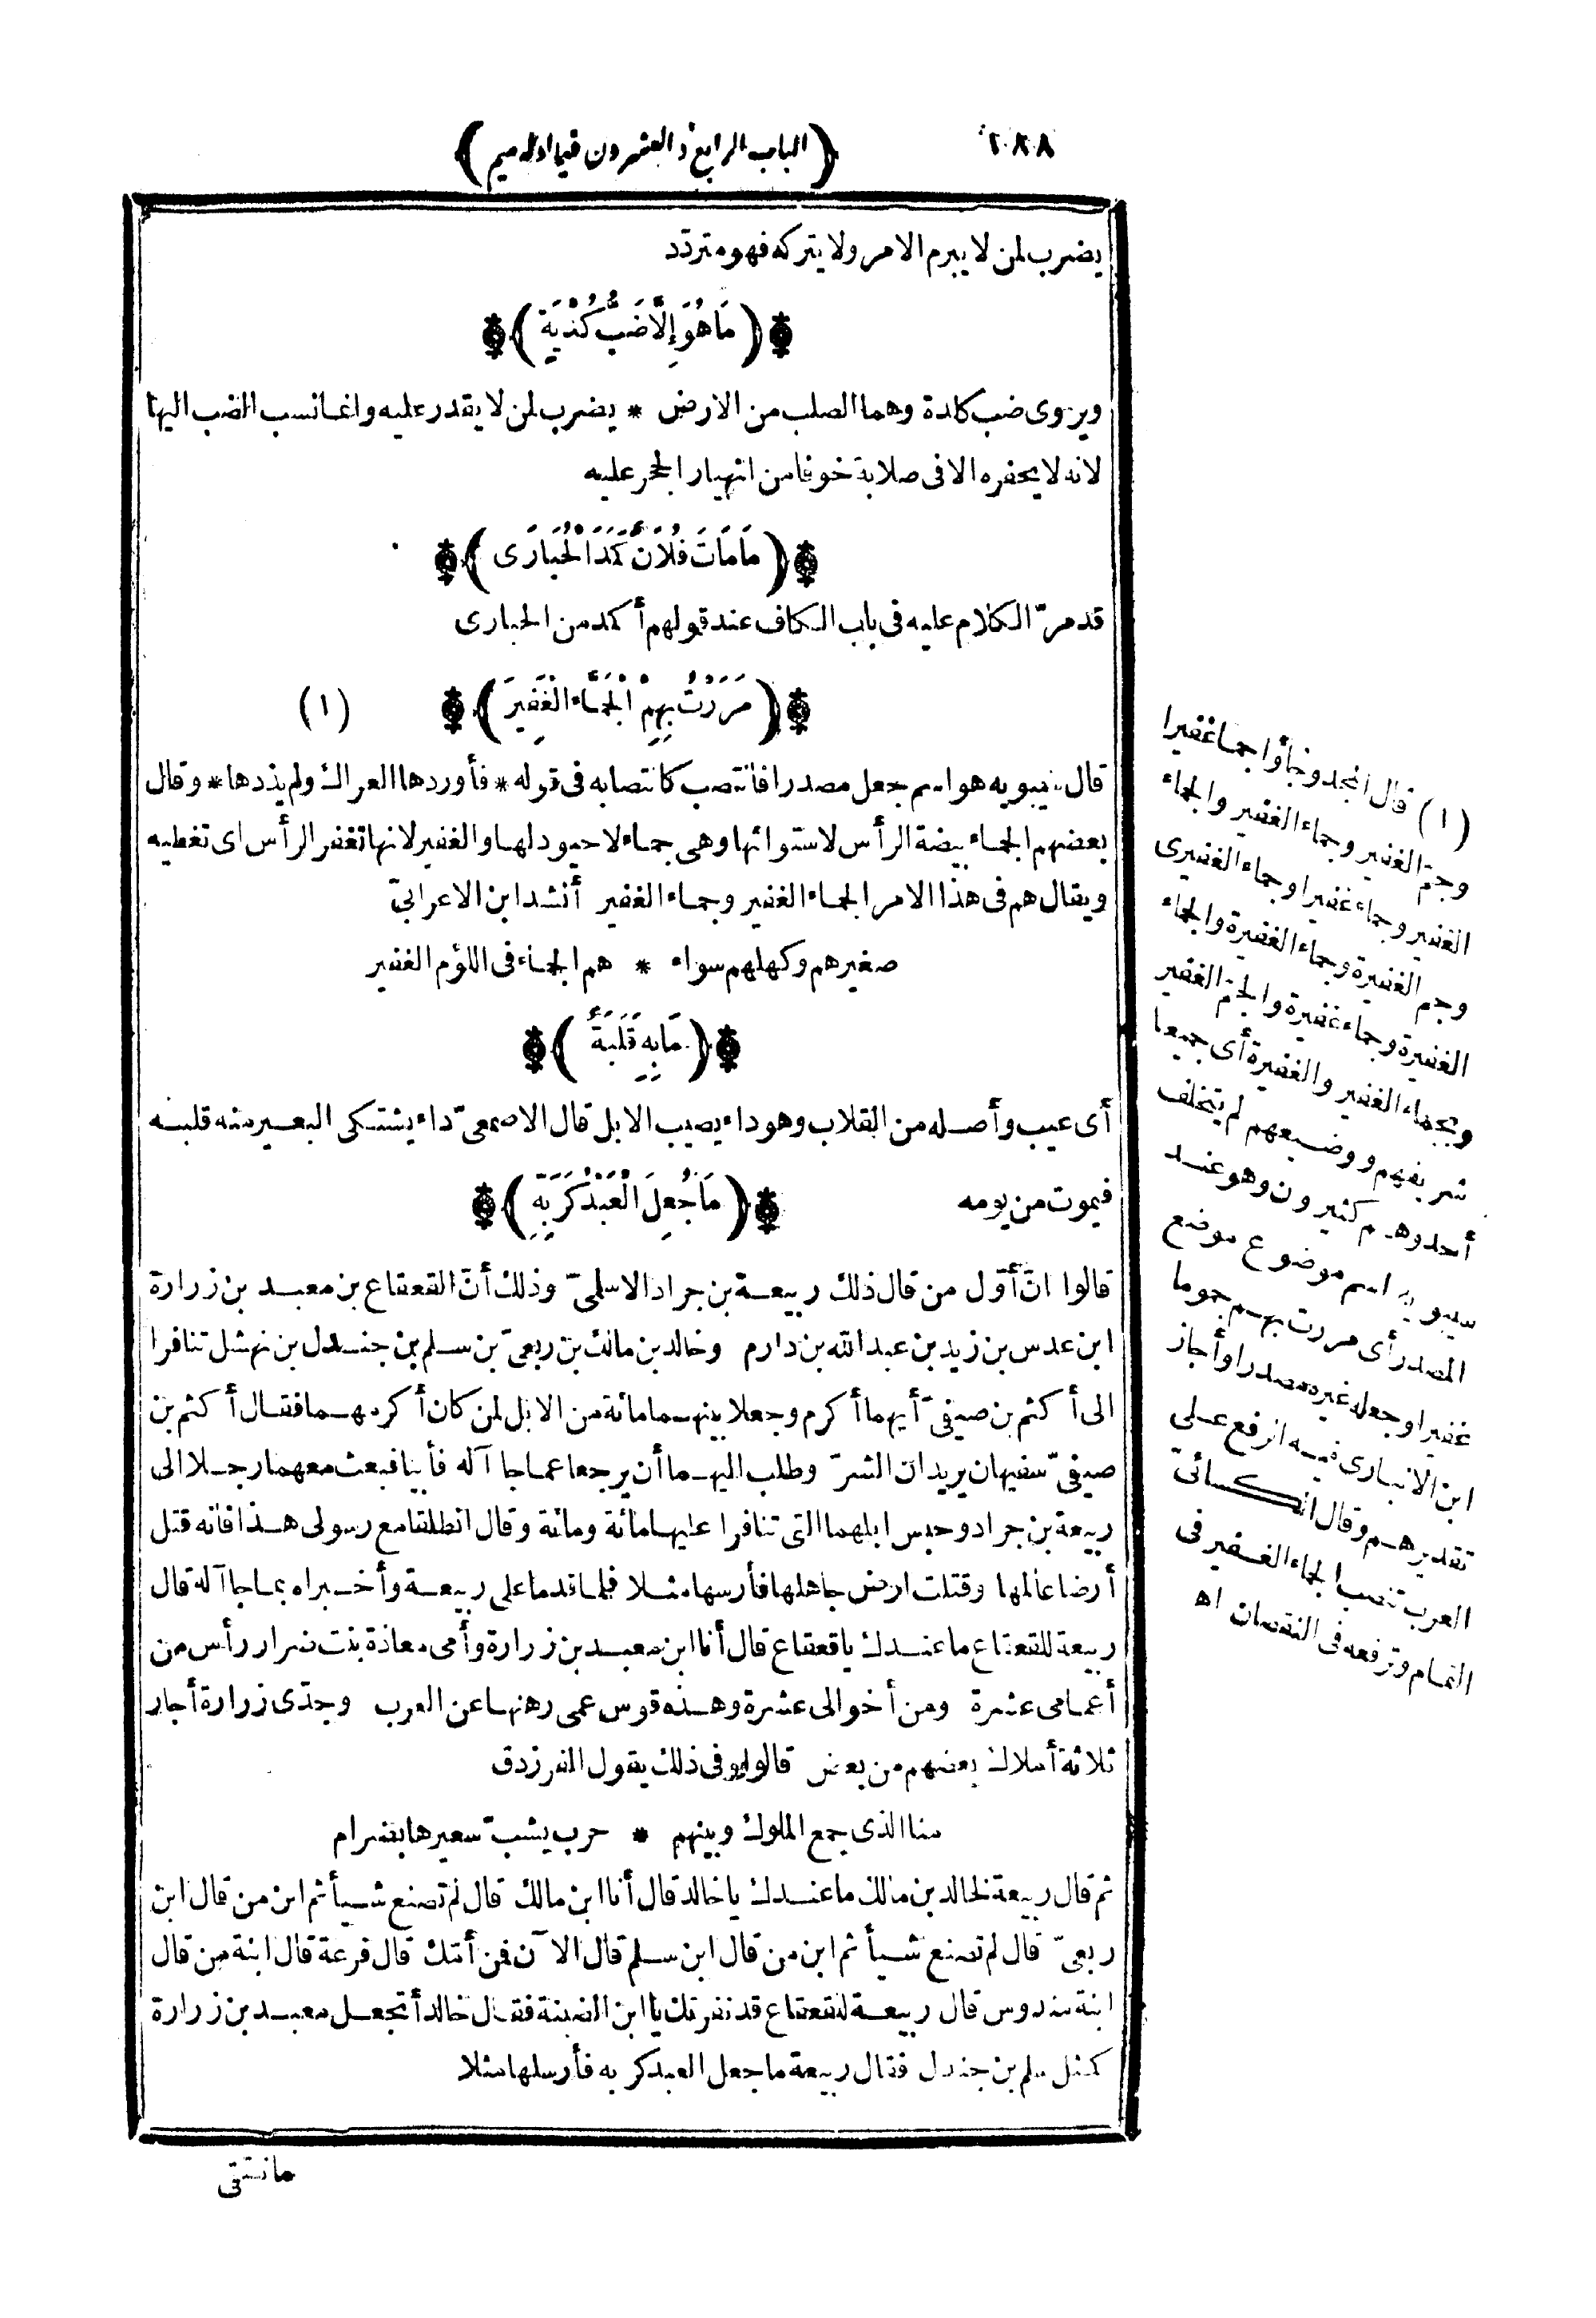 ٢٨٨
(الباب الرابع والعشرون فيما اوله ميم)
يضرب لمن لا يبرم الامر ولا يتركه فهو متردّد
(مَا هُوَ إِلَّا ضَبُّ كُدْيَةٍ)
ويروى ضب كلدة وهما الصلب من الارض * يضرب لمن لا يقدر عليه وانما نسب الضب اليها
لانه لا يحفره الا فى صلابة خوفا من انهيار الجحر عليه
(مَا مَاتَ فُلَانٌ كَمَدَ الْحُبَارَى)
قد مرّ الكلام عليه فى باب الكاف عند قولهم أكمد من الحبارى
(مَرَرْتُ بِهِمْ الْجَمَّاءَ الْغَفِيرَ) (١)
قال سيبويه هو اسم جعل مصدرا فانتصب كانتصابه فى قوله * فأوردها العراك ولم يذدها * وقال
بعضهم الجماء بيضة الرأس لاستوائها وهى جماء لا حيود لها والغفير لانها تغفر الرأس اى تغطيه
ويقال هم فى هذا الامر الجماء الغفير وجماء الغفير أنشد ابن الاعرابىّ
صغيرهم وكهلهم سواء * هم الجماء فى اللؤم الغفير
(مَا بِهِ قَلَبَةٌ)
أى عيب وأصله من القلاب وهو داء يصيب الابل قال الاصمعىّ داء يشتكى البعير منه قلبه
فيموت من يومه (مَا جُعِلَ الْعَبْدُ كَرَبِّهِ)
قالوا انّ أوّل من قال ذلك ربيعة بن جراد الاسلمىّ وذلك أنّ القعقاع بن معبد بن زرارة
ابن عدس بن زيد بن عبد الله بن دارم وخالد بن مالك بن ربعىّ بن سلم بن جندل بن نهشل تنافرا
الى أكثم بن صيفىّ أيهما أكرم وجعلا بينهما مائة من الابل لمن كان أكرمهما فقال أكثم بن
صيفىّ سفيهان يريدان الشرّ وطلب اليهما أن يرجعا عما جا آ له فأبيا فبعث معهما رجلا الى
ربيعة بن جراد وحبس ابلهما التى تنافرا عليها مائة ومائة وقال انطلقا مع رسولى هذا فانه قتل
أرضا عالمها وقتلت ارض جاهلها فأرسلها مثلا فلما قدما على ربيعة وأخبراه بما جا آ له قال
ربيعة للقعقاع ما عندك يا قعقاع قال أنا ابن معبد بن زرارة وأمى معاذة بنت ضرار رأس من
أعمامى عشرة ومن أخوالى عشرة وهذه قوس عمى رهنها عن العرب وجدّى زرارة أجار
ثلاثة أملاك بعضهم من بعض قالوا وفى ذلك يقول الفرزدق
منا الذى جمع الملوك وبينهم * حرب يشبّ سعيرها بضرام
ثم قال ربيعة لخالد بن مالك ما عندك يا خالد قال أنا ابن مالك قال لم تصنع شيأ ثم ابن من قال ابن
ربعىّ قال لم تصنع شيأ ثم ابن من قال ابن سلم قال الآن فمن أمّك قال فرعة قال ابنة من قال
ابنة مندوس قال ربيعة للقعقاع قد نفرتك يا ابن الضبنة فقال خالد أتجعل معبد بن زرارة
كمثل سلم بن جندل فقال ربيعة ما جعل العبد كربه فأرسلها مثلا
ما نتقى
(١) قال المجد وجاؤا جما غفيرا
وجمّ الغفير وجماء الغفير والجماء
الغفير وجماء غفيرا وجماء الغفيرى
وجم الغفيرة وجماء الغفيرة والجماء
الغفيرة وجماء غفيرة والجمّ الغفير
وبجماء الغفير والغفيرة أى جميعا
شريفهم ووضيعهم لم يتخلف
أحد وهم كثيرون وهو عند
سيبويه اسم موضوع موضع
المصدر أى مررت بهم جموما
غفيرا وجعله غيره مصدرا وأجاز
ابن الانبارى فيه الرفع على
تقدير هم وقال الكسائىّ
العرب تنصب الجماء الغفير فى
التمام وترفعه فى النقصان اه